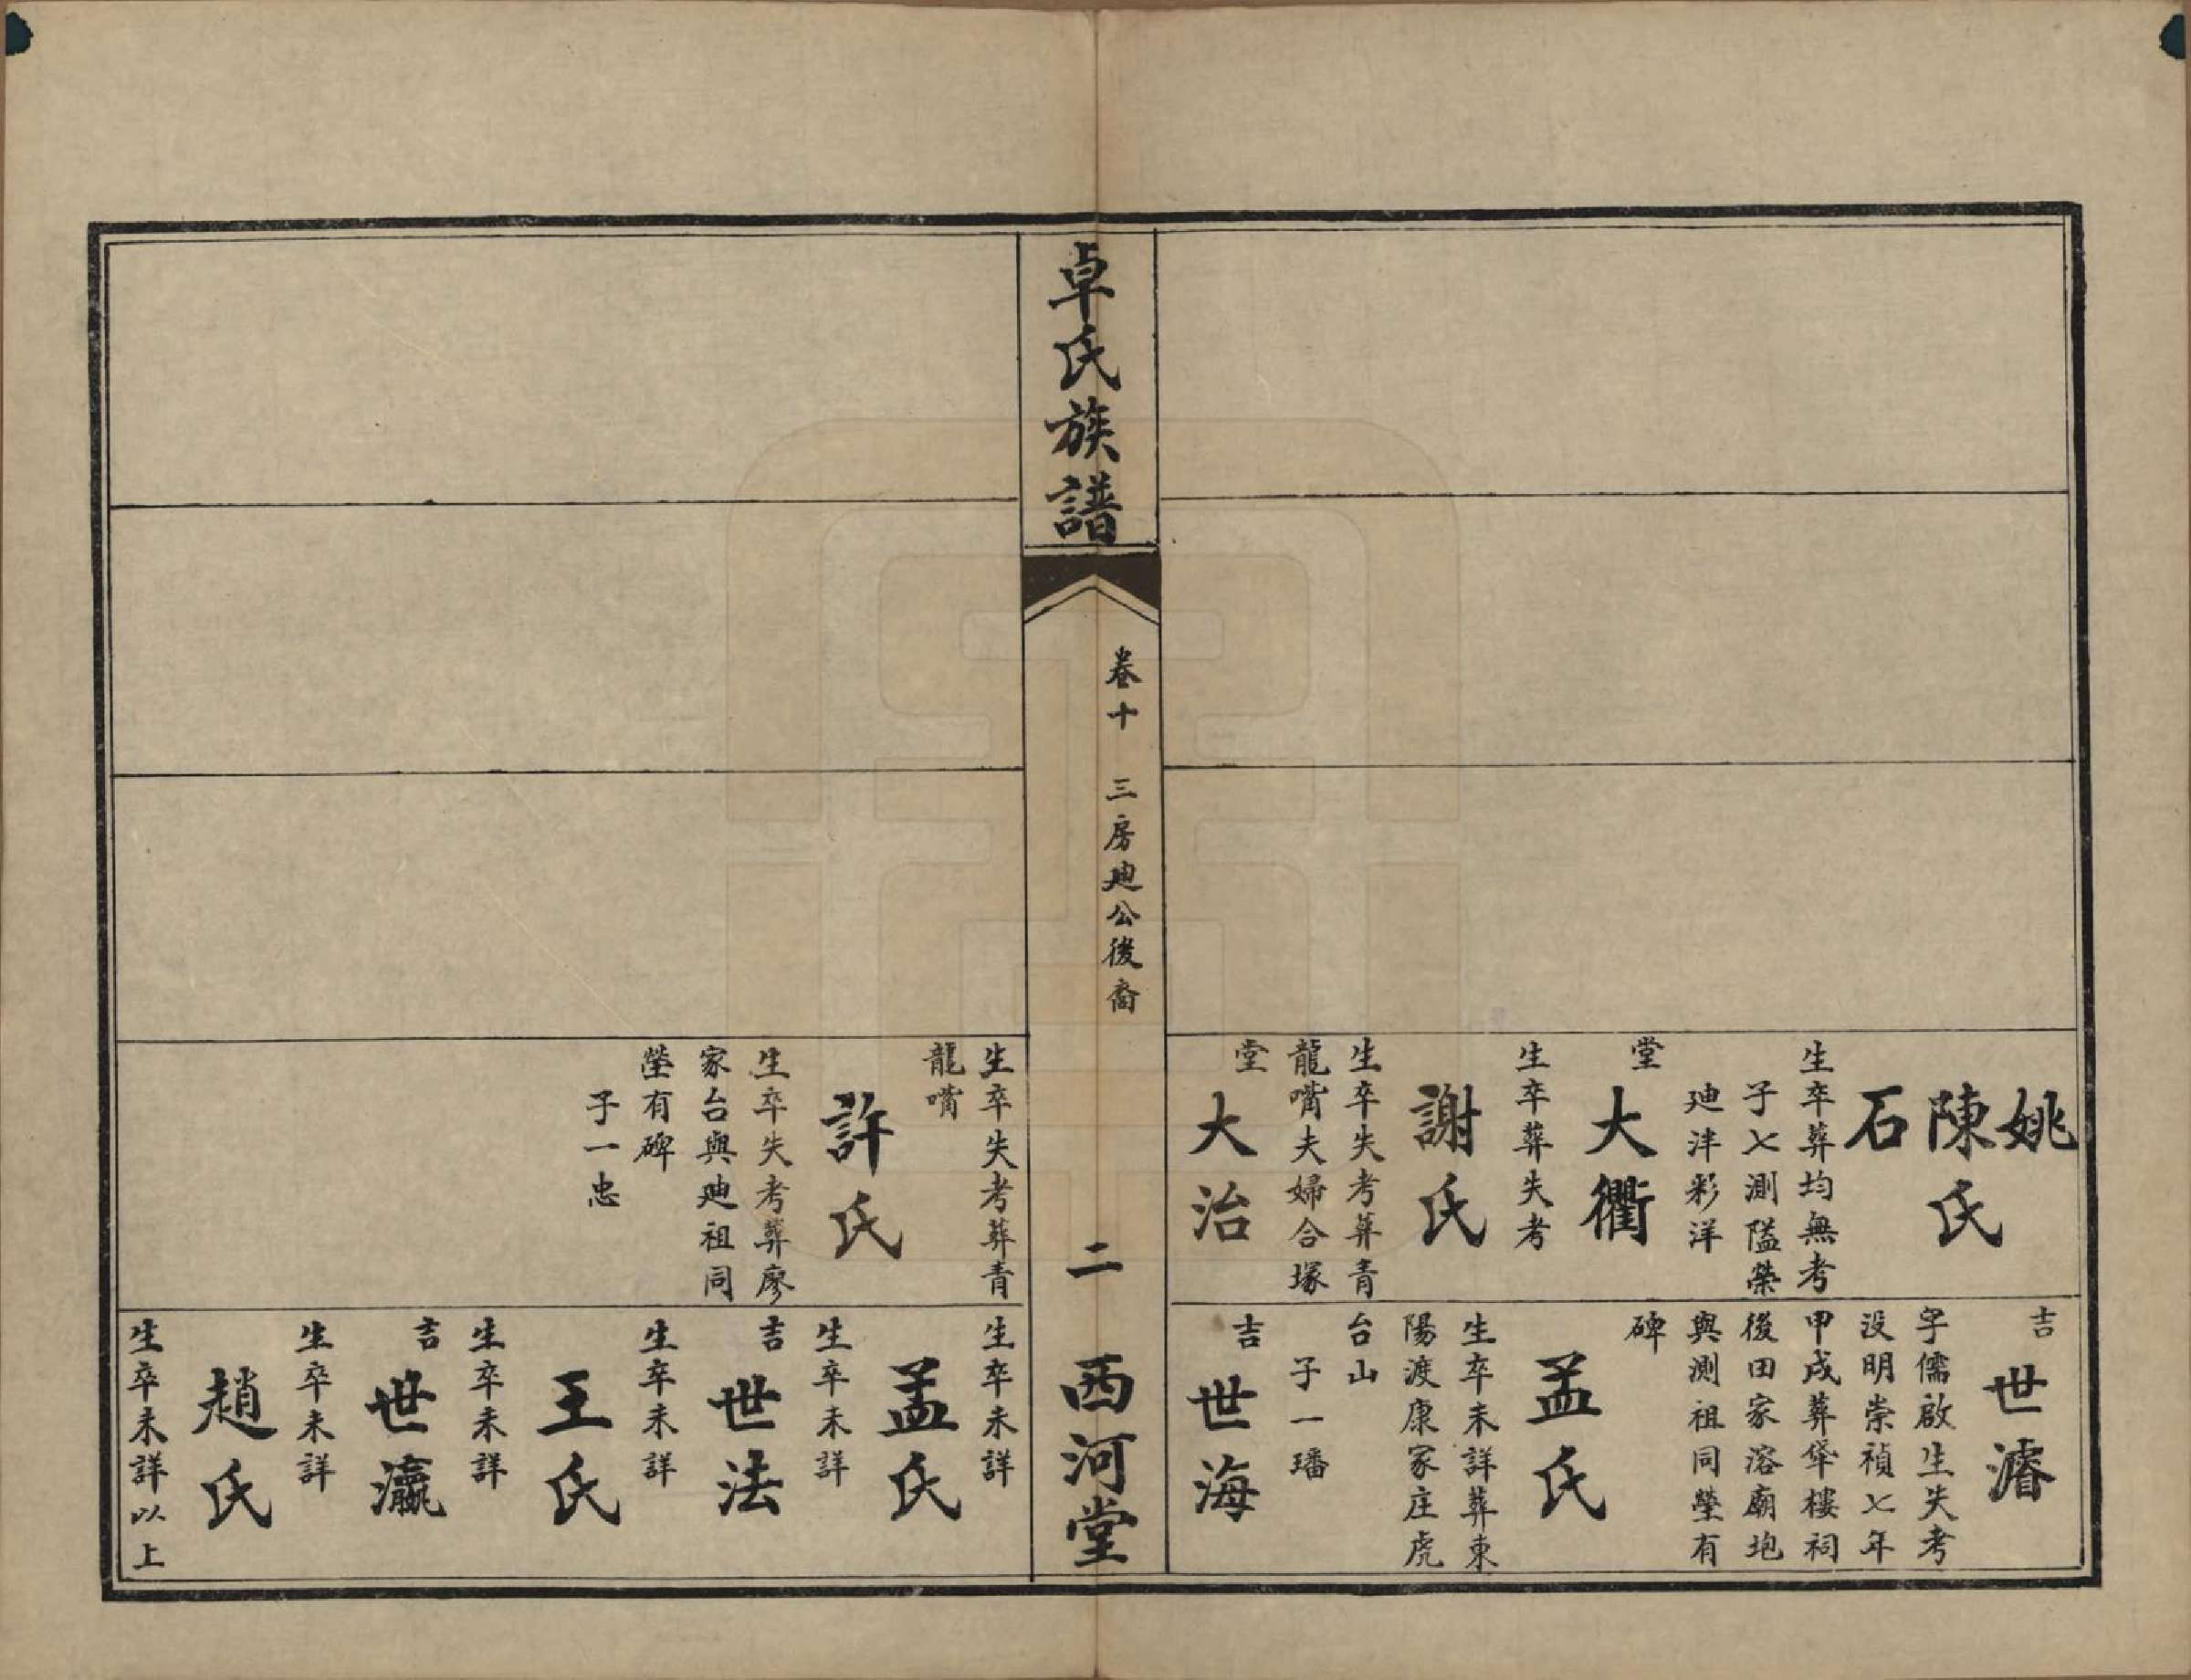 姚
陳氏
石
生卒葬均無考
子七測隘榮
廸沣彩洋
堂
大衢
生卒葬失考
謝氏
生卒失考葬青
龍嘴夫婦合塚
堂
大治
吉
世濬
字儒啟生失考
没明崇禎七年
甲戌葬華樓祠
後田家溶廟垉
與測祖同塋有
碑
孟氏
生卒未詳葬東
陽渡康家庄虎
台山
子一璠
吉
世海
卓氏族譜
卷十 三房廸公後裔
二
西河堂
生卒失考葬青
龍嘴
許氏
生卒失考葬廖
家台與廸祖同
塋有碑
子一忠
生卒未詳
孟氏
生卒未詳
吉
世法
生卒未詳
王氏
生卒未詳
吉
世瀛
生卒未詳
趙氏
生卒未詳以上